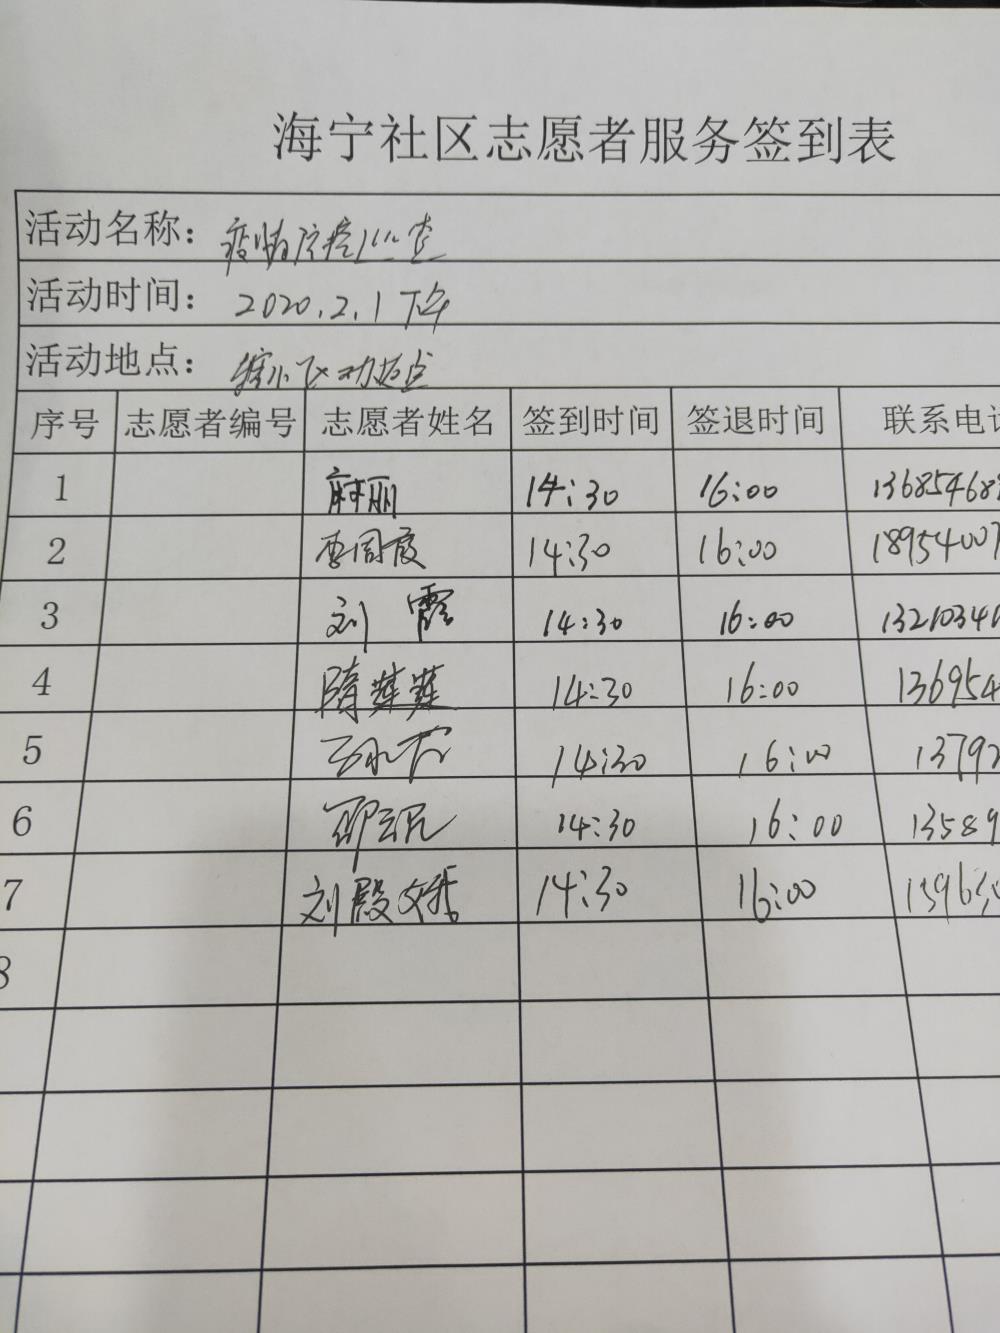 海宁社区志愿者服务签到表
活动名称：疫情防控巡查
活动时间：2020.2.1下午
活动地点：辖小区动迁点
序号 志愿者编号 志愿者姓名 签到时间 签退时间 联系电
1 麻丽 14:30 16:00 13685468
2 14:30 16:00 1895400
3 刘霞 14:30 16:00 1321034
4 隋莲莲 14:30 16:00 136954
5 14:30 16:00 1379
6 14:30 16:00 13589
7 刘殿文 14:30 16:00 15963
8